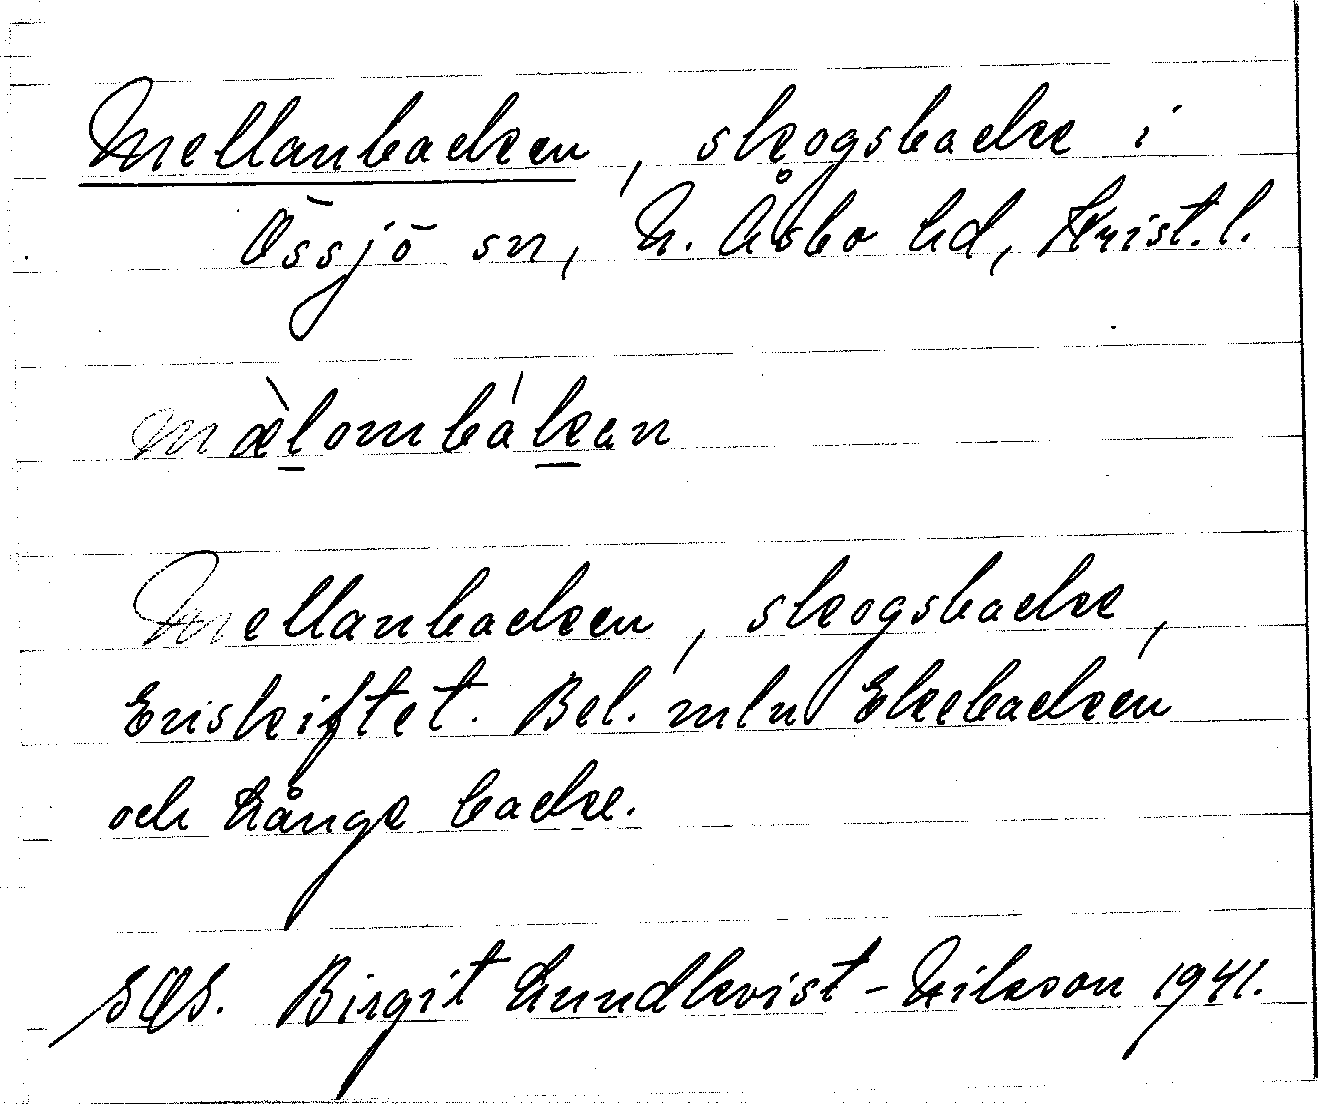 Mellanbacken, skogsbacke i
Össjö sn, N. Åsbo hd, Krist. l.
mæ̀lombákan
Mellanbacken, skogsbacke,
Enskiftet. Bel. mln Ekebacken
och Långe backe.
SOS. Birgit Lundkvist-Nilsson 1941.